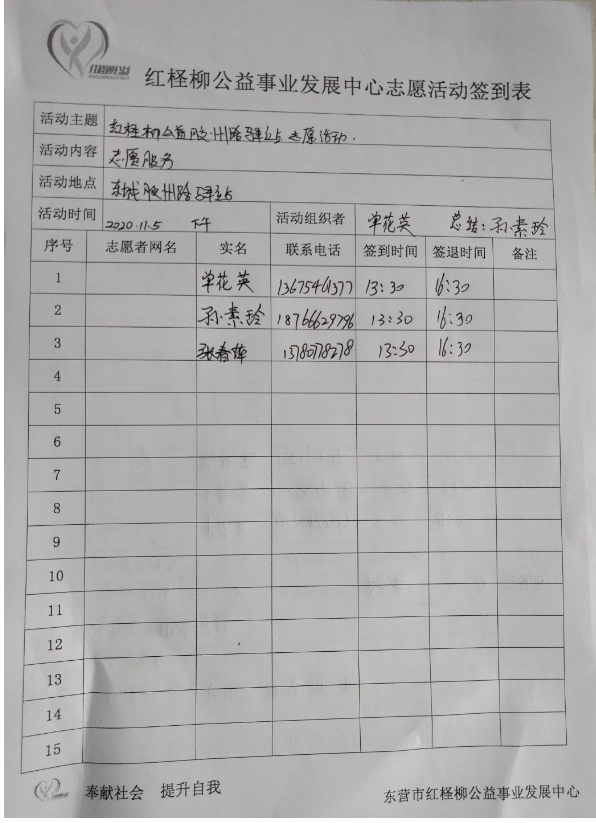 红柽柳公益
红柽柳公益事业发展中心志愿活动签到表
活动主题 红柽柳公益胶州路驿站志愿活动.
活动内容 志愿服务
活动地点 东城胶州路驿站
活动时间 2020.11.5 下午 活动组织者 单花英 总结:孙素玲
序号 志愿者网名 实名 联系电话 签到时间 签退时间 备注
1 单花英 13675461377 13:30 16:30
2 孙素玲 18766629796 13:30 16:30
3 张春 13780778278 13:30 16:30
4
5
6
7
8
9
10
11
12
13
14
15
奉献社会 提升自我 东营市红柽柳公益事业发展中心